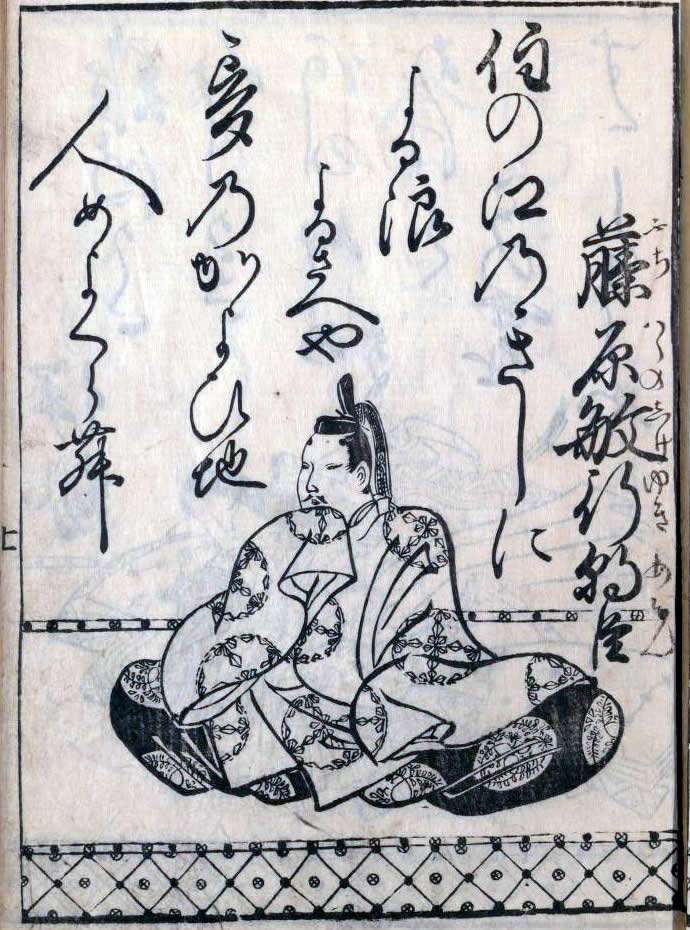 藤原敏行朝臣
ふち はらのとしゆき あそん
住の江乃きしに
よる浪
よるさへや
夢乃かよひ地
人めよくら舞
上